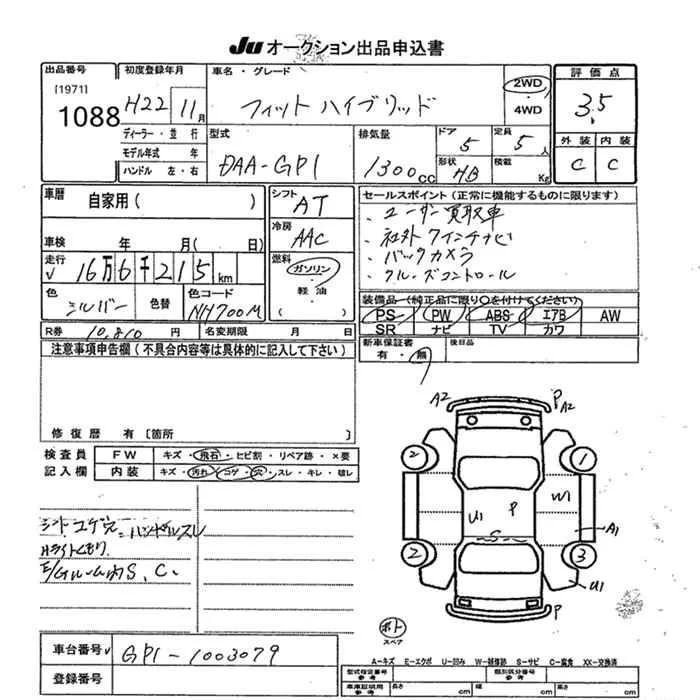 JU オークション出品申込書
出品番号 初度登録年月 車名・グレード 評価点
[1971] 1088 H22 11月 フィット ハイブリッド 2WD・4WD 3.5
ディーラー・並行 型式 排気量 ドア 定員 外装 内装
モデル年式 年 DAA-GP1 1300cc 5 5人 C C
ハンドル 左・右 形状 HB 積載 Kg
車歴 自家用( ) シフト AT セールスポイント(正常に機能するものに限ります)
・ユーザー買取車
車検 年 月( 日) 冷房 AAC ・社外7インチナビ
・バックカメラ
走行 16万6千215km 燃料 ガソリン・軽油・( ) ・クルーズコントロール
色 シルバー 色替 色コード NH700M 装備品 (純正品に限り○を付けてください)
PS PW ABS エアB AW
R券 10,810円 名変期限 月 日 SR ナビ TV カワ
注意事項申告欄(不具合内容等は具体的に記入して下さい) 新車保証書 有・無 後日品
A2 P A2
修復歴 有 〔箇所
検査員 FW キズ・飛石・ヒビ割・リペア跡・×要
記入欄 内装 キズ・汚れ・コゲ・穴・スレ・キレ・破レ
2 1
U1 P W1 A1
S
シート コゲ穴 ハンドルスレ
Hライトくもり
E/Gルーム内S、C、
2 3 U1
P
ポト スペア
車台番号 GP1-1003079
A-キズ E-エクボ U-凹み W-補修跡 S-サビ C-腐食 XX-交換済
登録番号 型式指定番号 類別区分番号
車庫証明用参考 長さ cm 幅 cm 高さ cm